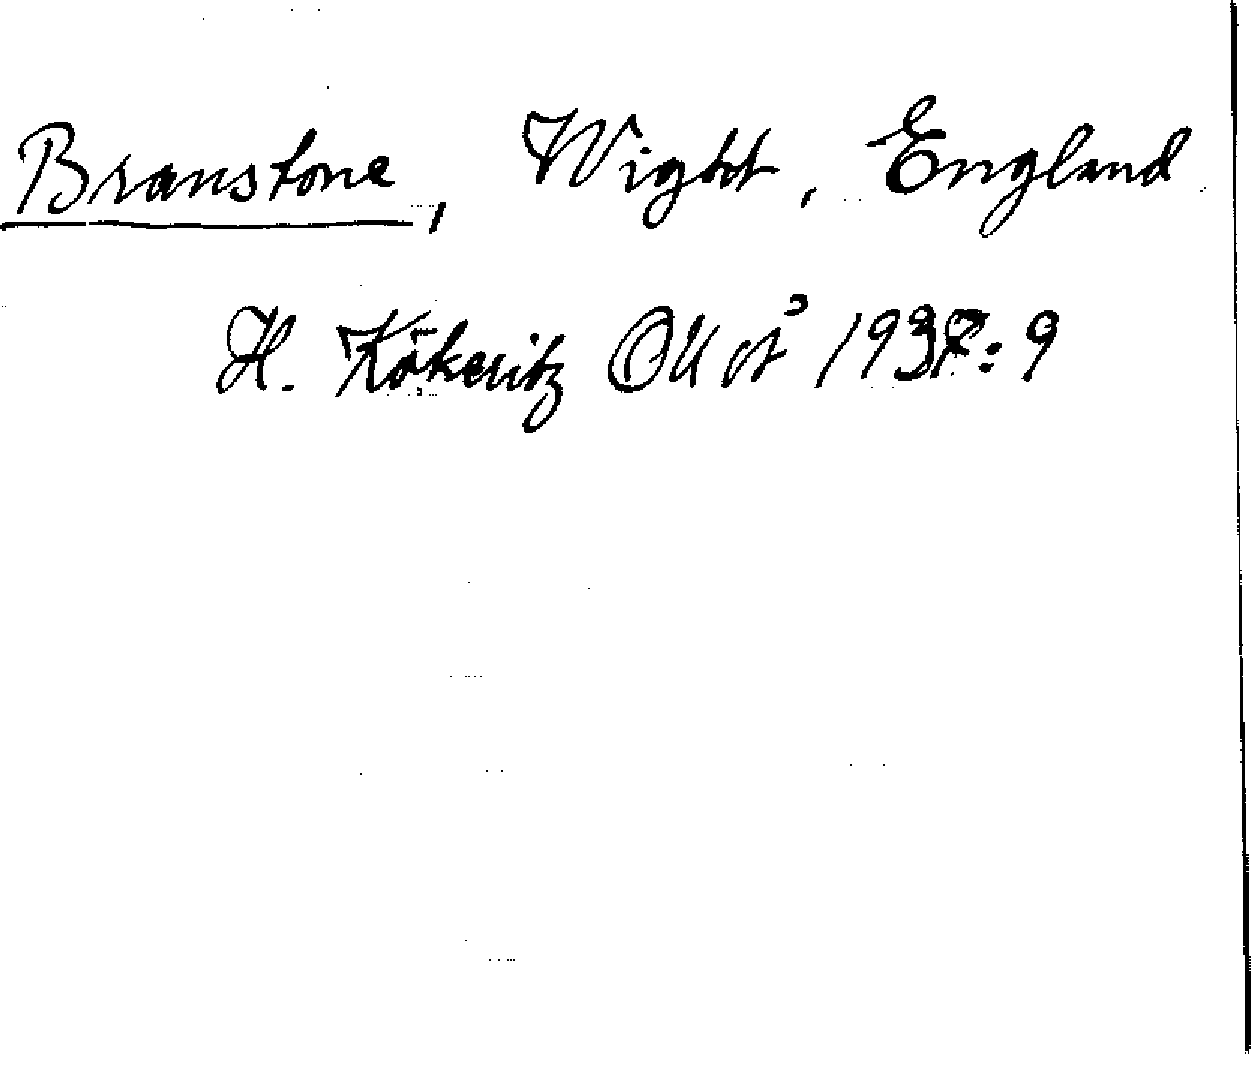 Branstone, Wight, England
H. Kökeritz 1937:9